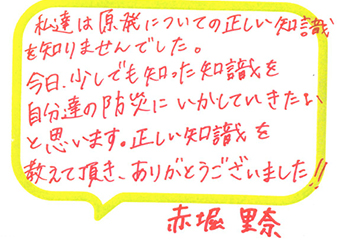 私達は原発についての正しい知識
を知りませんでした。
今日、少しでも知った知識を
自分達の防災にいかしていきたい
と思います。正しい知識を
教えて頂き、ありがとうございました!!
赤堀 里奈